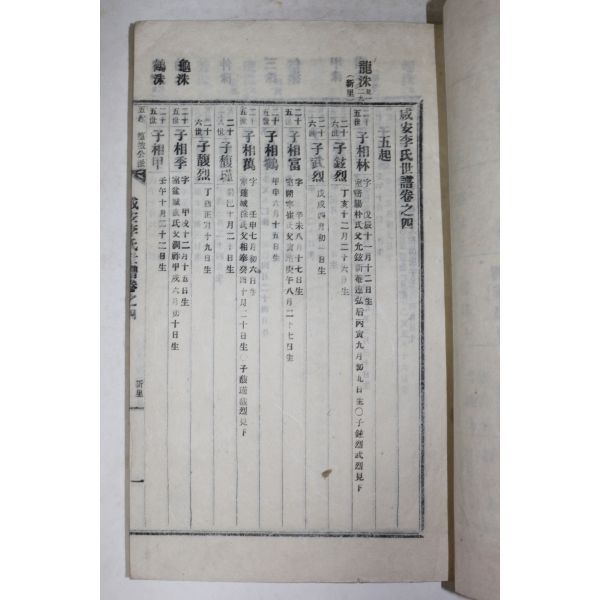 咸安李氏世譜卷之四
五起
龍洙
(新里)
二十五世 子相林 字 戊辰十一月十二日生
室密陽朴氏父允鉉 后丙寅九月初九日生〇子鍾烈武烈見下
二十六世 子鉉烈 丁亥十二月二十六日生
二十六世 子武烈 戊戌四月初一日生
二十五世 子相富 字 辛未八月十七日生
室朔寧崔氏父 庚午八月二十七日生
二十五世 子相鶴 甲申六月十五日生
二十五世 子相萬 字 壬申七月初六日生
室達城徐氏父相奉癸酉十月二十日生〇子馥瑾馥烈見下
二十六世 子馥瑾 十月二十日生
二十六世 子馥烈 丁酉正月十九日生
龜洙
二十五世 子相季 字 甲戌十二月十五日生
室盆城 氏父 祥甲戌六月初十日生
鶴洙
二十五世 子相甲 壬午十月二十二日生
五起
咸安李氏世譜卷之四
新里
一